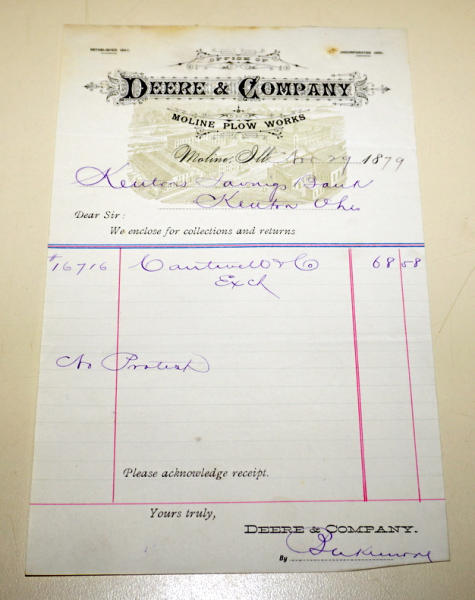 ESTABLISHED 1847.
INCORPORATED 1868.
OFFICE OF
DEERE & COMPANY
MOLINE PLOW WORKS
Moline, Ill. Nov 29 1879
Kenton Savings Bank
Kenton Ohio
Dear Sir:
We enclose for collections and returns
#16716 Cantwell & Co 68 58
Exch
No Protest
Please acknowledge receipt.
Yours truly,
DEERE & COMPANY.
By